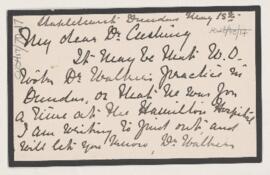 Dundas May 18th
My dear Dr. Cushing
It may be that W.O.
took Dr Walker's practice in
Dundas, or that he was for
a time at the Hamilton Hospital
I am writing to find out and
will let you know, Dr. Walker's